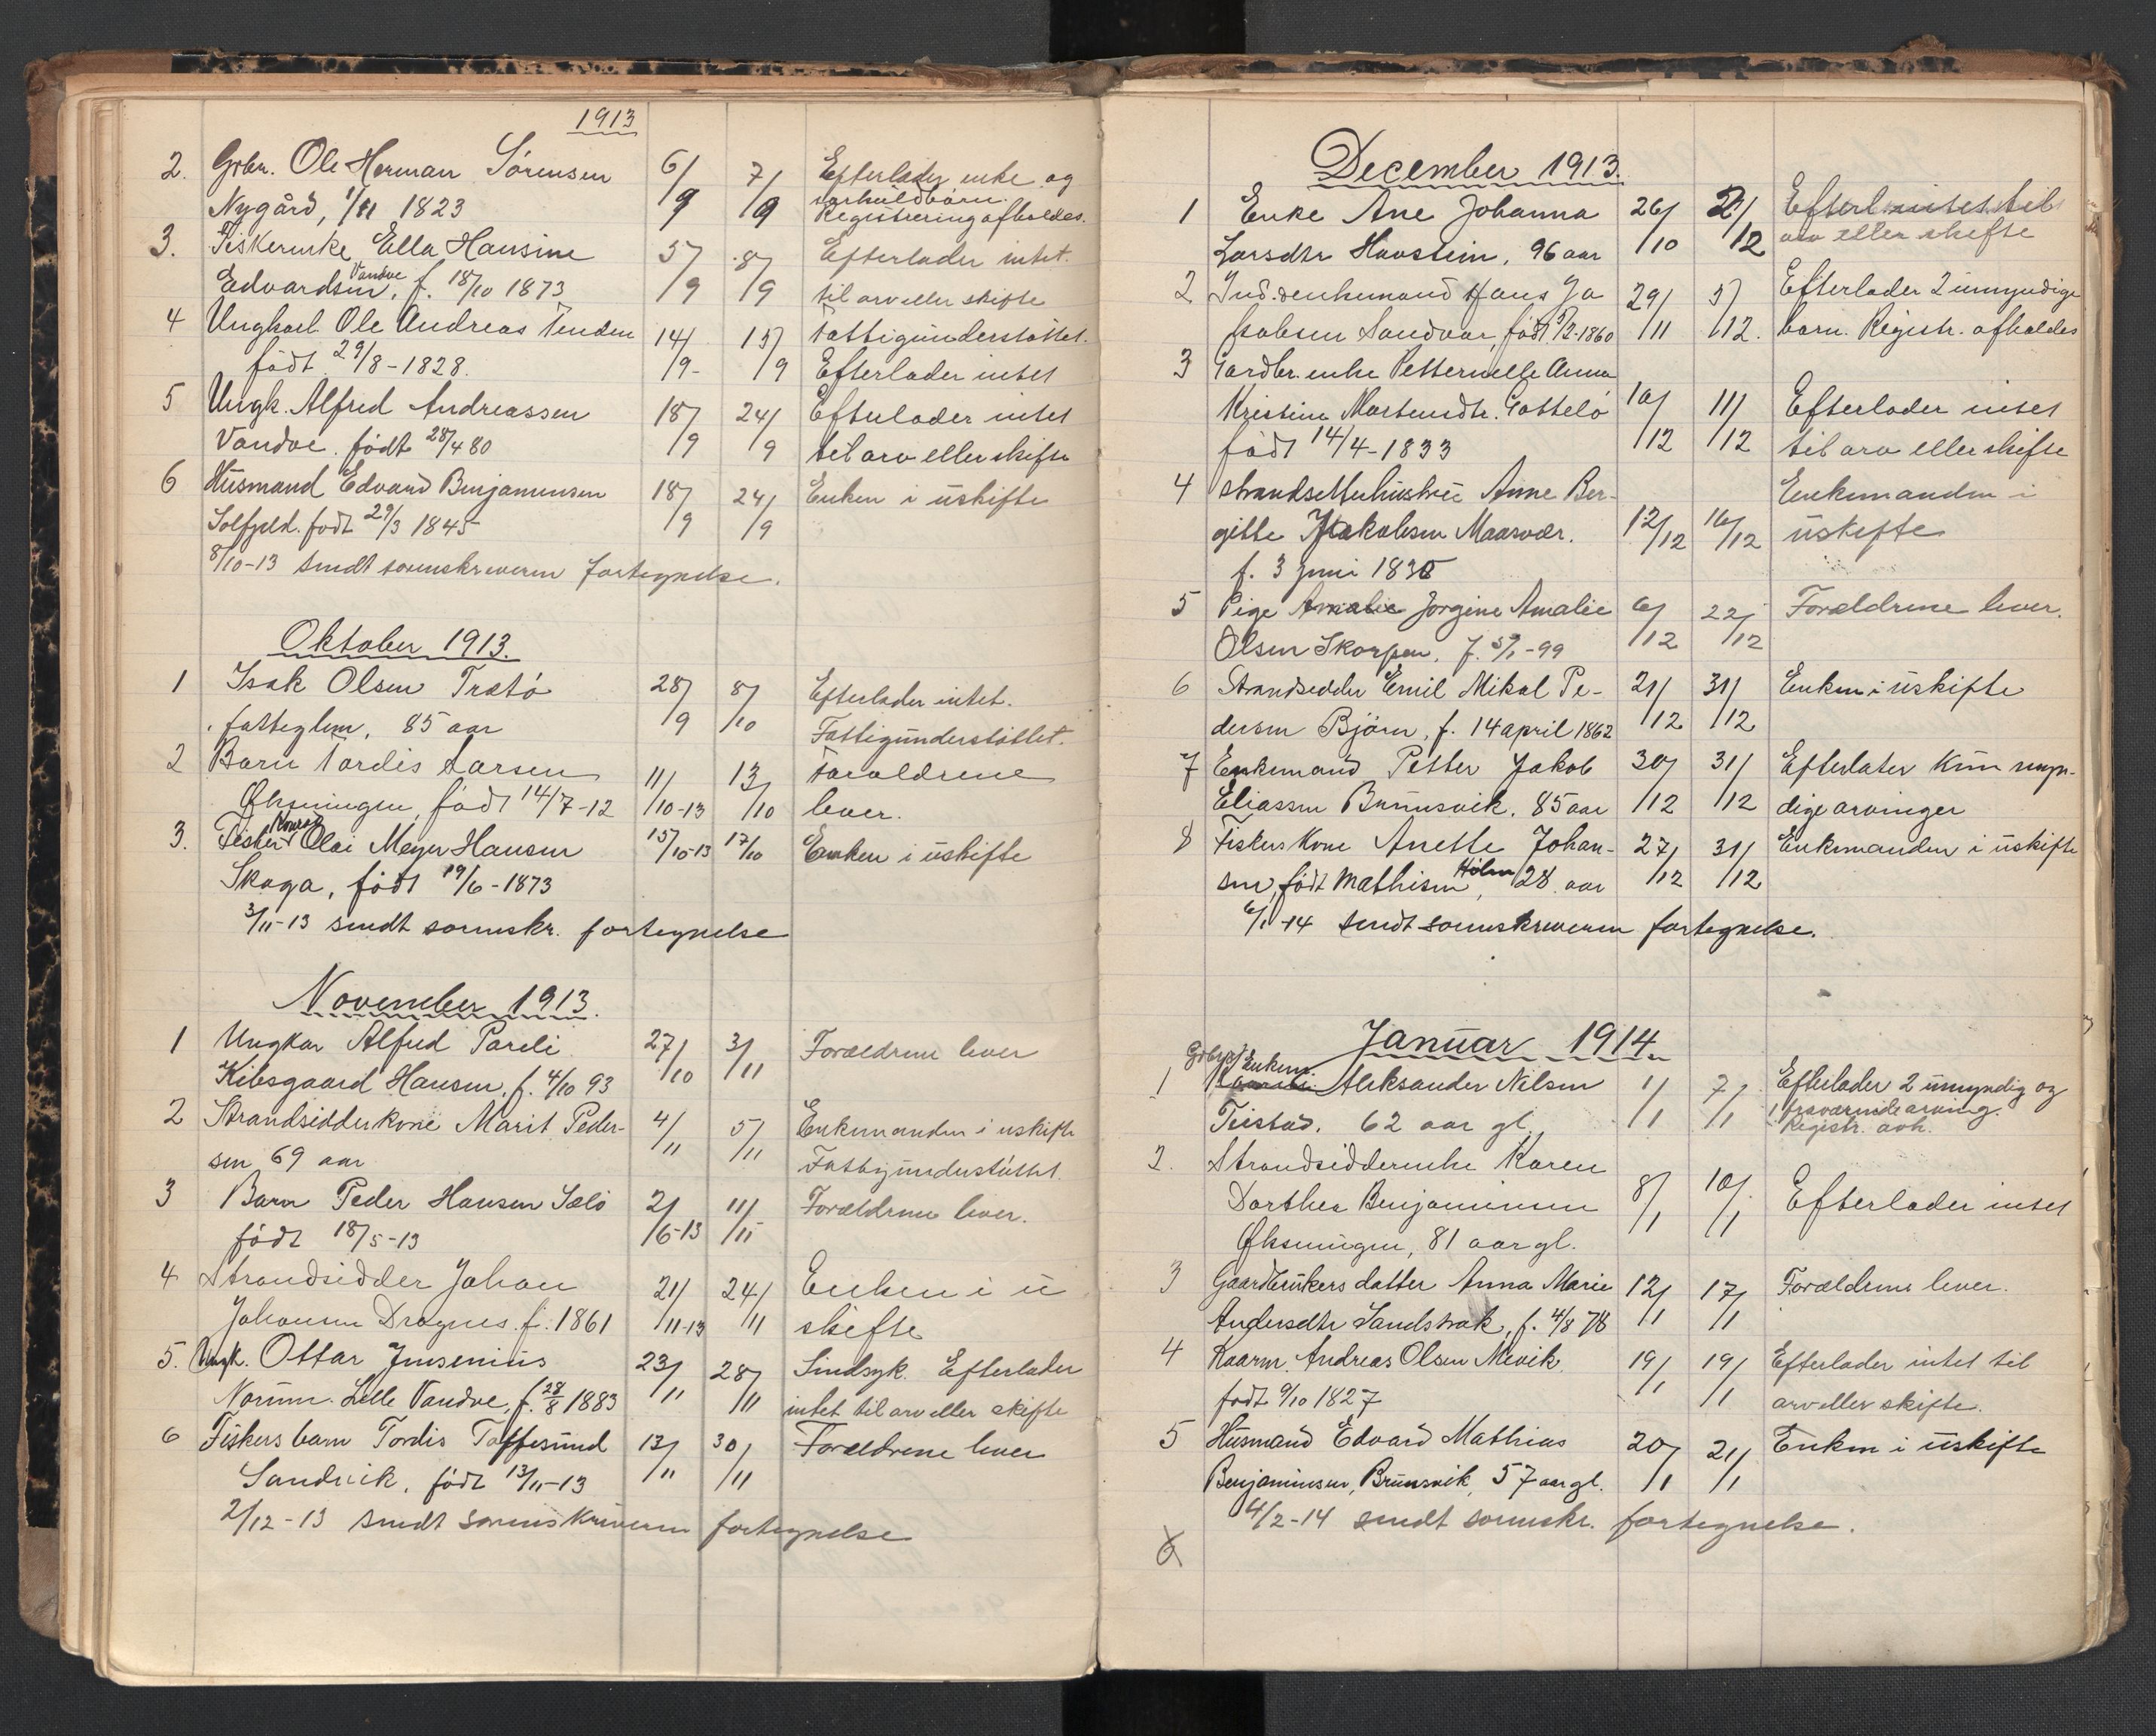 1913
2. Grbr. Ole Herman Sörensen 6/9 7/9 Efterlader enke og
Nygård, 1/11 1823 særkuldbørn.
Registrering afholdes.
3. Fiskerenke Ella Hansine 5/9 8/9 Efterlader intet
Edvardsen, Vandve f. 18/10 1873 til arv eller skifte
4 Ungkarl Ole Andreas Tenden 14/9- 15/9 Fattigunderstöttet.
født 29/8-1828. Efterlader intet
5 Ungk. Alfred Andreassen 18/9 24/9 Efterlader intet
Vandve. født 28/4 80 til arv eller skifte
6 Husmand Edvard Benjaminsen 18/9 24/9 Enken i uskifte
Solfjeld. født 29/3 1845
8/10-13 sendt sorenskriveren fortegnelse.
Oktober 1913.
1 Isak Olsen Trætö 28/9 8/10 Efterlader intet.
fattiglem, 85 aar Fattigunderstöttet.
2 Barn Tordis Larsen 11/10-13 13/10 Forældrene
Øksningen, født 14/7-12 lever.
3. Fisker Konrad Olai Meyer Hansen 15/10-13 17/10 Enken i uskifte
Skaga, født 19/6-1873
3/11-13 sendt sorenskr. fortegnelse
November 1913.
1 Ungkar Alfred Pareli 27/10 3/11 Forældrene lever
Kibsgaard Hansen, f. 4/10 93
2 Strandsidderkone Marit Peder- 4/11 5/11 Enkemanden i uskifte
sen 69 aar Fattigunderstöttet.
3 Barn Peder Hansen Sælö 2/6-13 11/11 Forældrene lever.
født 18/5-13
4 Strandsidder Johan 21/11-13 24/11 Enken i u
Johansen Dragnes. f. 1861 skifte
5. Ungk. Ottar Jensenius 23/11 28/11 Sindsyk. Efterlader
Normm. Lille Vandve, f. 28/8 1883 intet til arv eller skifte
6 Fiskers barn Tordis Toffesund 13/11 30/11 Forældrene lever
Sandvik, født 13/11-13
2/12-13 sendt sorenskriveren fortegnelse
December 1913.
1 Enke Ane Johanna 26/10 2/12 Efterl. intet til
Larsdtr Havstein, 96 aar arv eller skifte
2 Ind.denkemand Hans Ja 29/11 5/12. Efterlader 2 umyndige
kobsen Sandvær, født 5/2-1860 barn. Registr. afholdes
3 Gardbr. enke Petternelle Anna
Kristine Mortensdtr. Gåsselö 10/12 11/12 Efterlader intet
født 14/4-1833 til arv eller skifte
4 Strandsitterhustru Anne Ber- Enkemanden i
gitte Jakobsen Maasvær. 12/12 16/12 uskifte
f. 3 juni 1835
5 Pige Jorgine Amalie 6/12 22/12 Forældrene lever.
Olsen Skorpen, f. 5/1-99
6 Strandsidder Emil Mikal Pe- 21/12 31/12 Enken i uskifte
dersen Bjørn, f. 14 april 1862
7 Enkemand Petter Jakob 30/12 31/12 Efterlater kun myn-
Eliassen Brunsvik, 85 aar dige arvinger
8 Fiskers kone Anette Johan- 27/12 31/12 Enkemanden i uskifte
sen, født Mathisen, Holm 28 aar
6/1-14 sendt sorenskriveren fortegnelse.
Januar 1914
1 Enkem. Aleksander Nilsen 1/1 7/1 Efterlader 2 umyndig og
Teistad. 62 aar gl. 1 fraværende arving.
Registr. avh.
2. Strandsidderenke Karen
Dorthea Benjaminsen 8/1 10/1 Efterlader intet
Øksningen, 81 aar gl.
3 Gaardbrukers datter Anna Marie 12/1 17/1 Forældrene lever.
Andersdtr Sandstrak, f. 4/8 78
4 Kaarm. Andreas Olsen Mevik 19/1 19/1 Efterlader intet til
født 9/10 1827 arv eller skifte.
5 Husmand Edvard Mathias 20/1 21/1 Enken i uskifte
Benjaminsen, Brunsvik, 57 aar gl.
4/2-14 sendt sorenskr. fortegnelse.